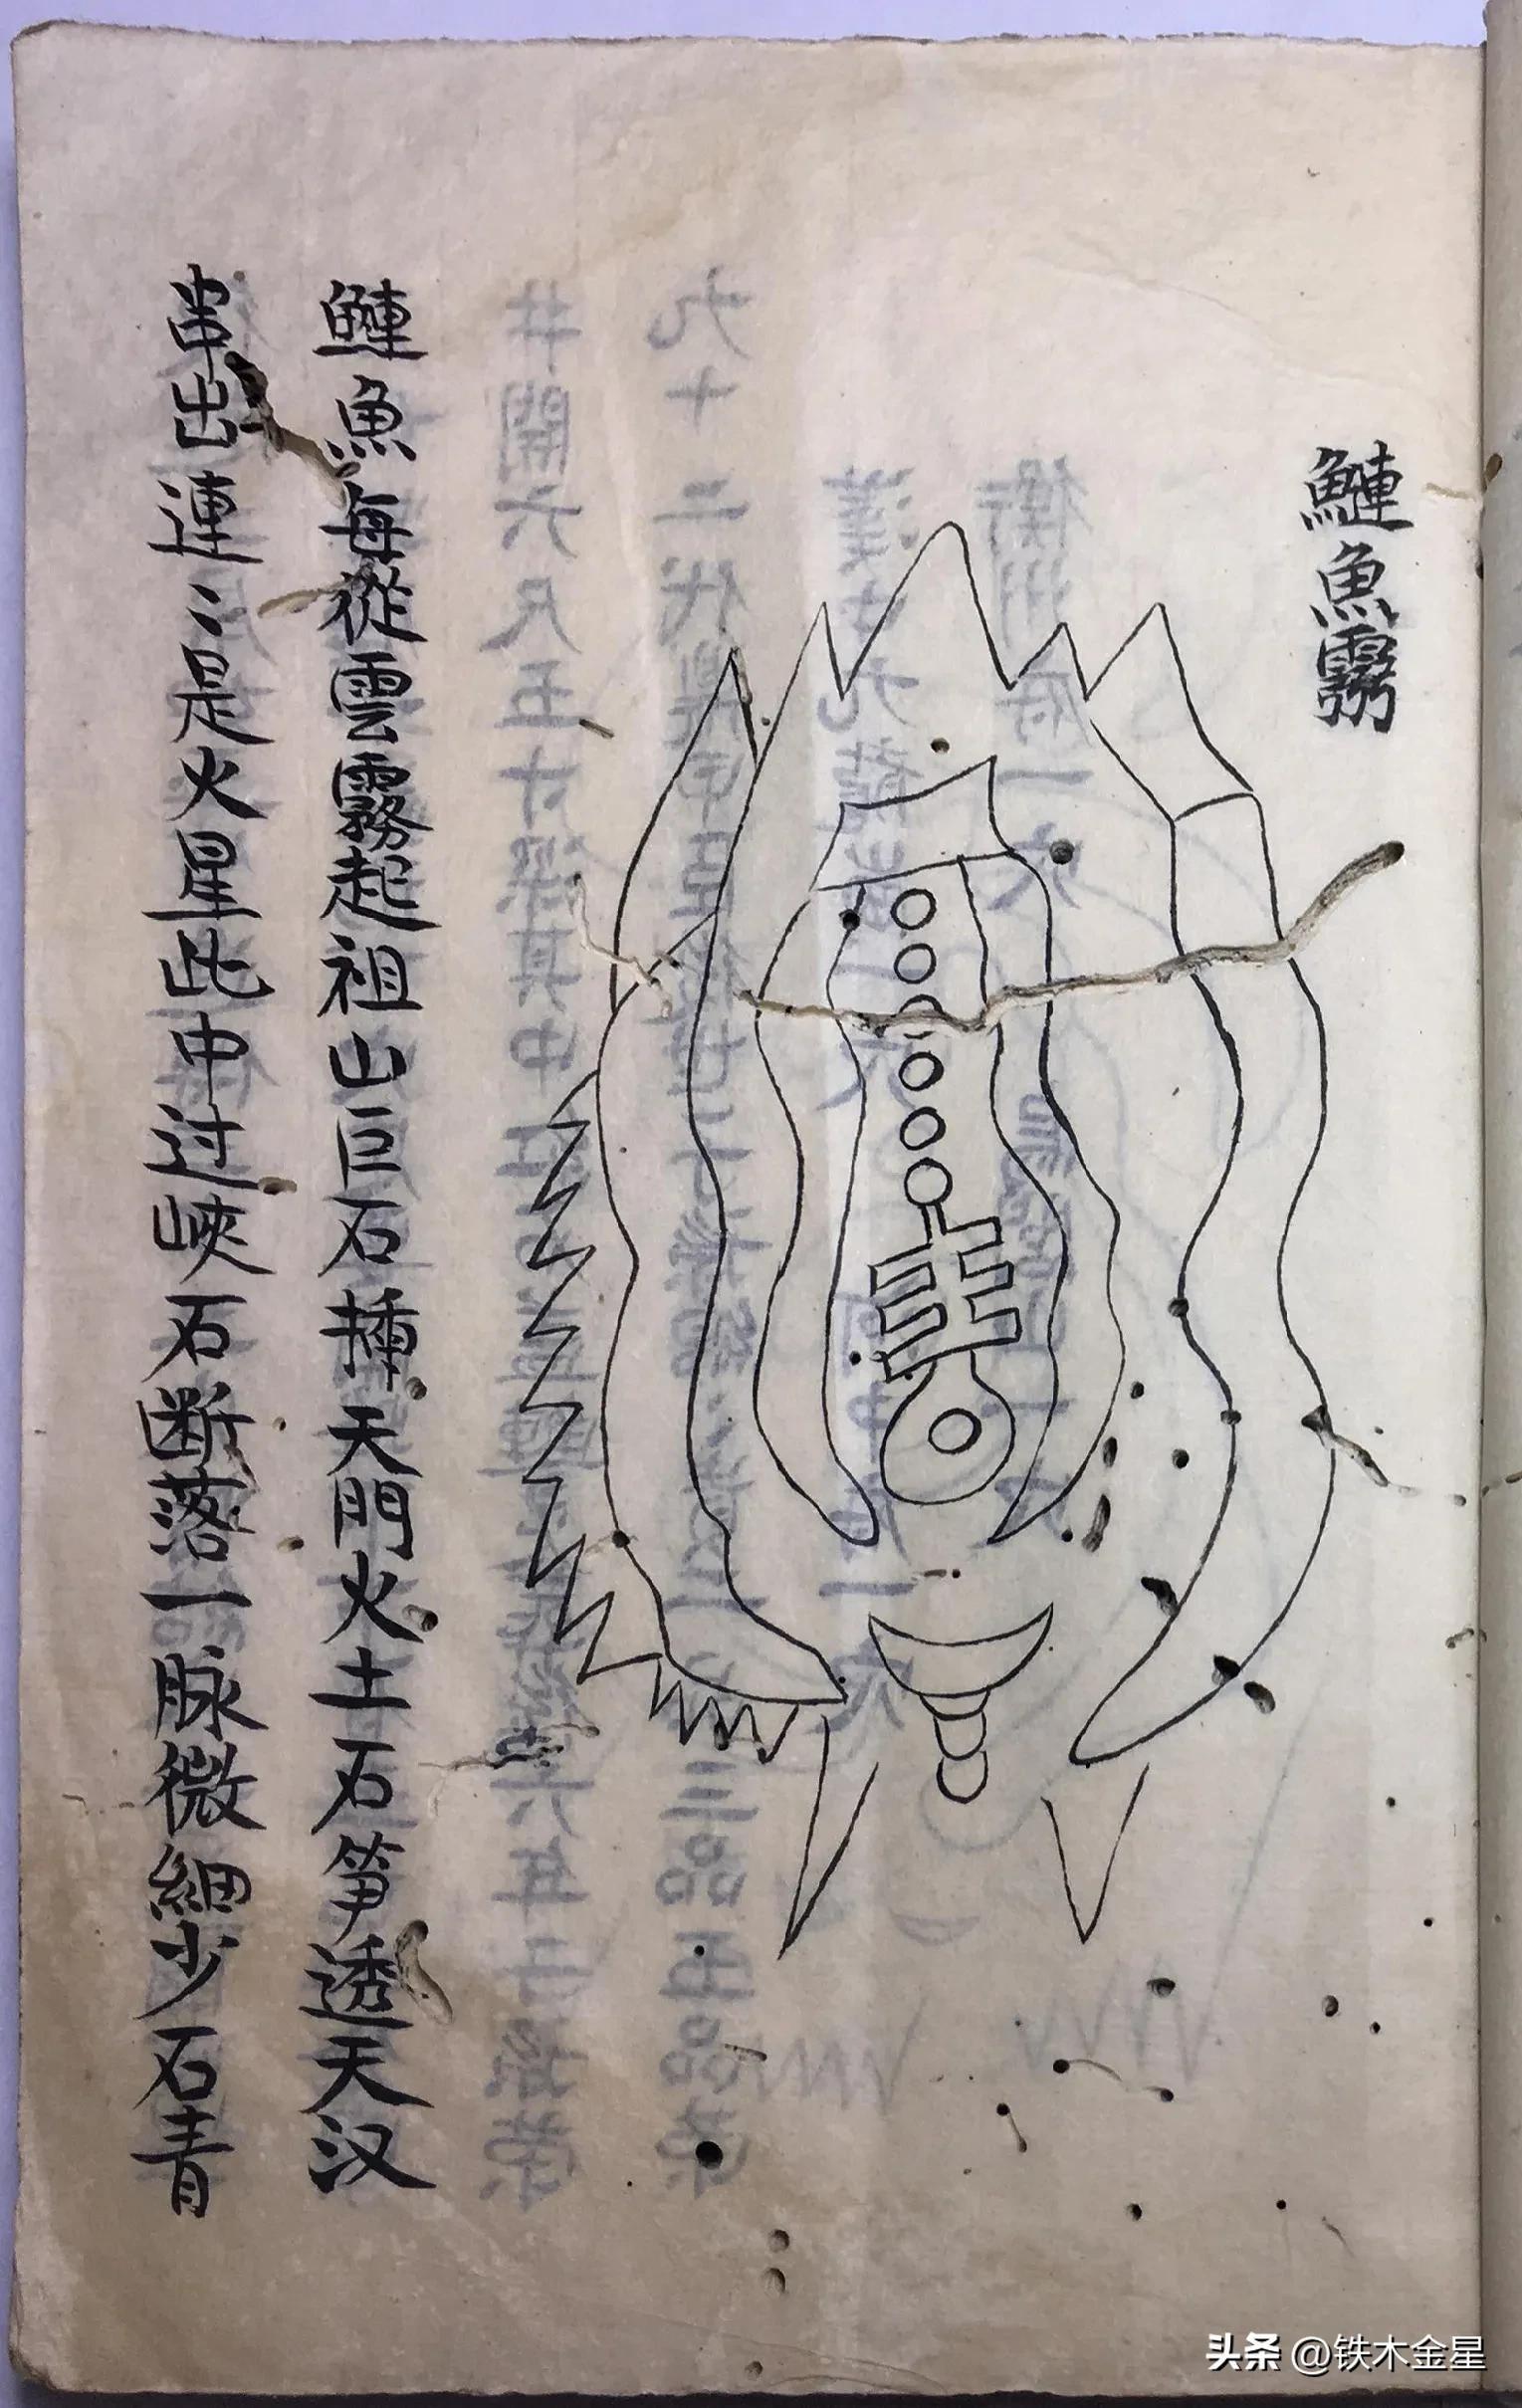 鰱魚霧
鰱魚每從雲霧起祖山巨石揷天門火土石笋透天汉
串出連〻是火星此中过峽石断落一脉微細少石青
头条 @铁木金星